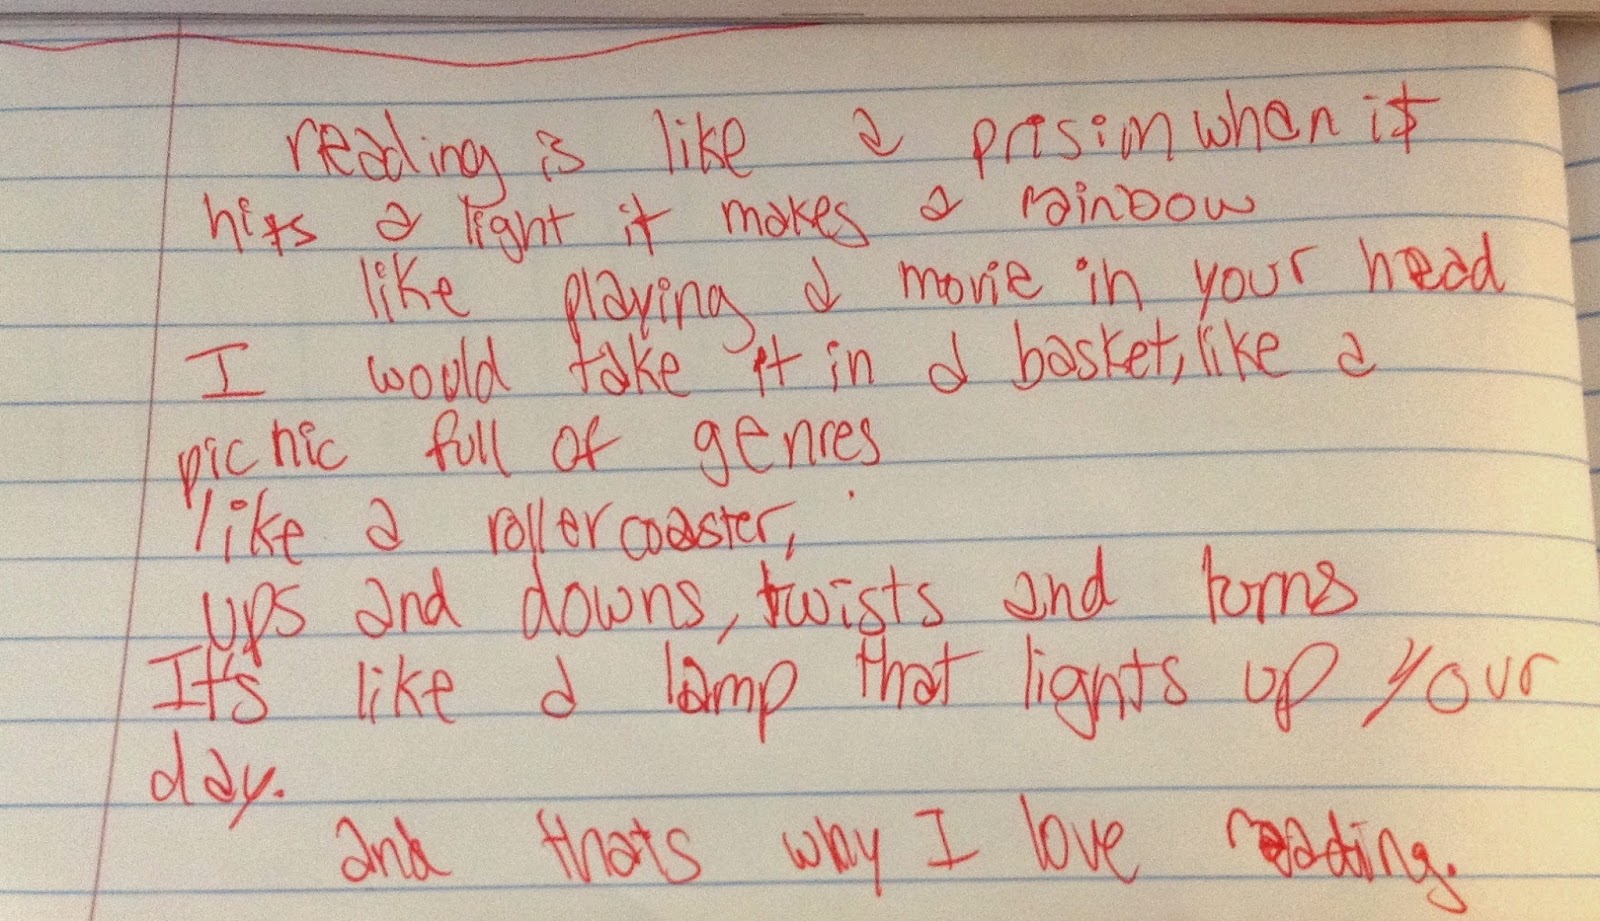 reading is like a prisim when it
hits a light it makes a rainbow
like playing a movie in your head
I would take it in a basket, like a
picnic full of genres
like a rollercoaster,
ups and downs, twists and torns
It's like a lamp that lights up your
day.
and thats why I love reading.